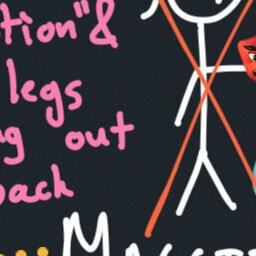 tion"&
legs
g out
back
M